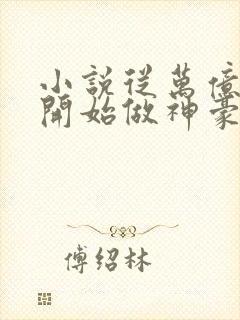 小說從萬億
開始做神豪
傅紹林